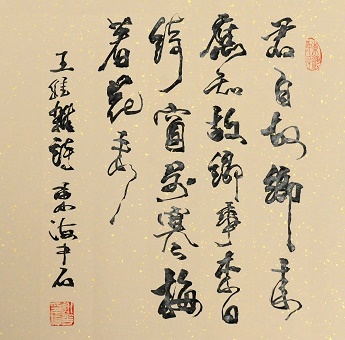 君自故鄉来
應知故鄉事来日
綺窗前寒梅
著花未
王維雜詩 東海中石